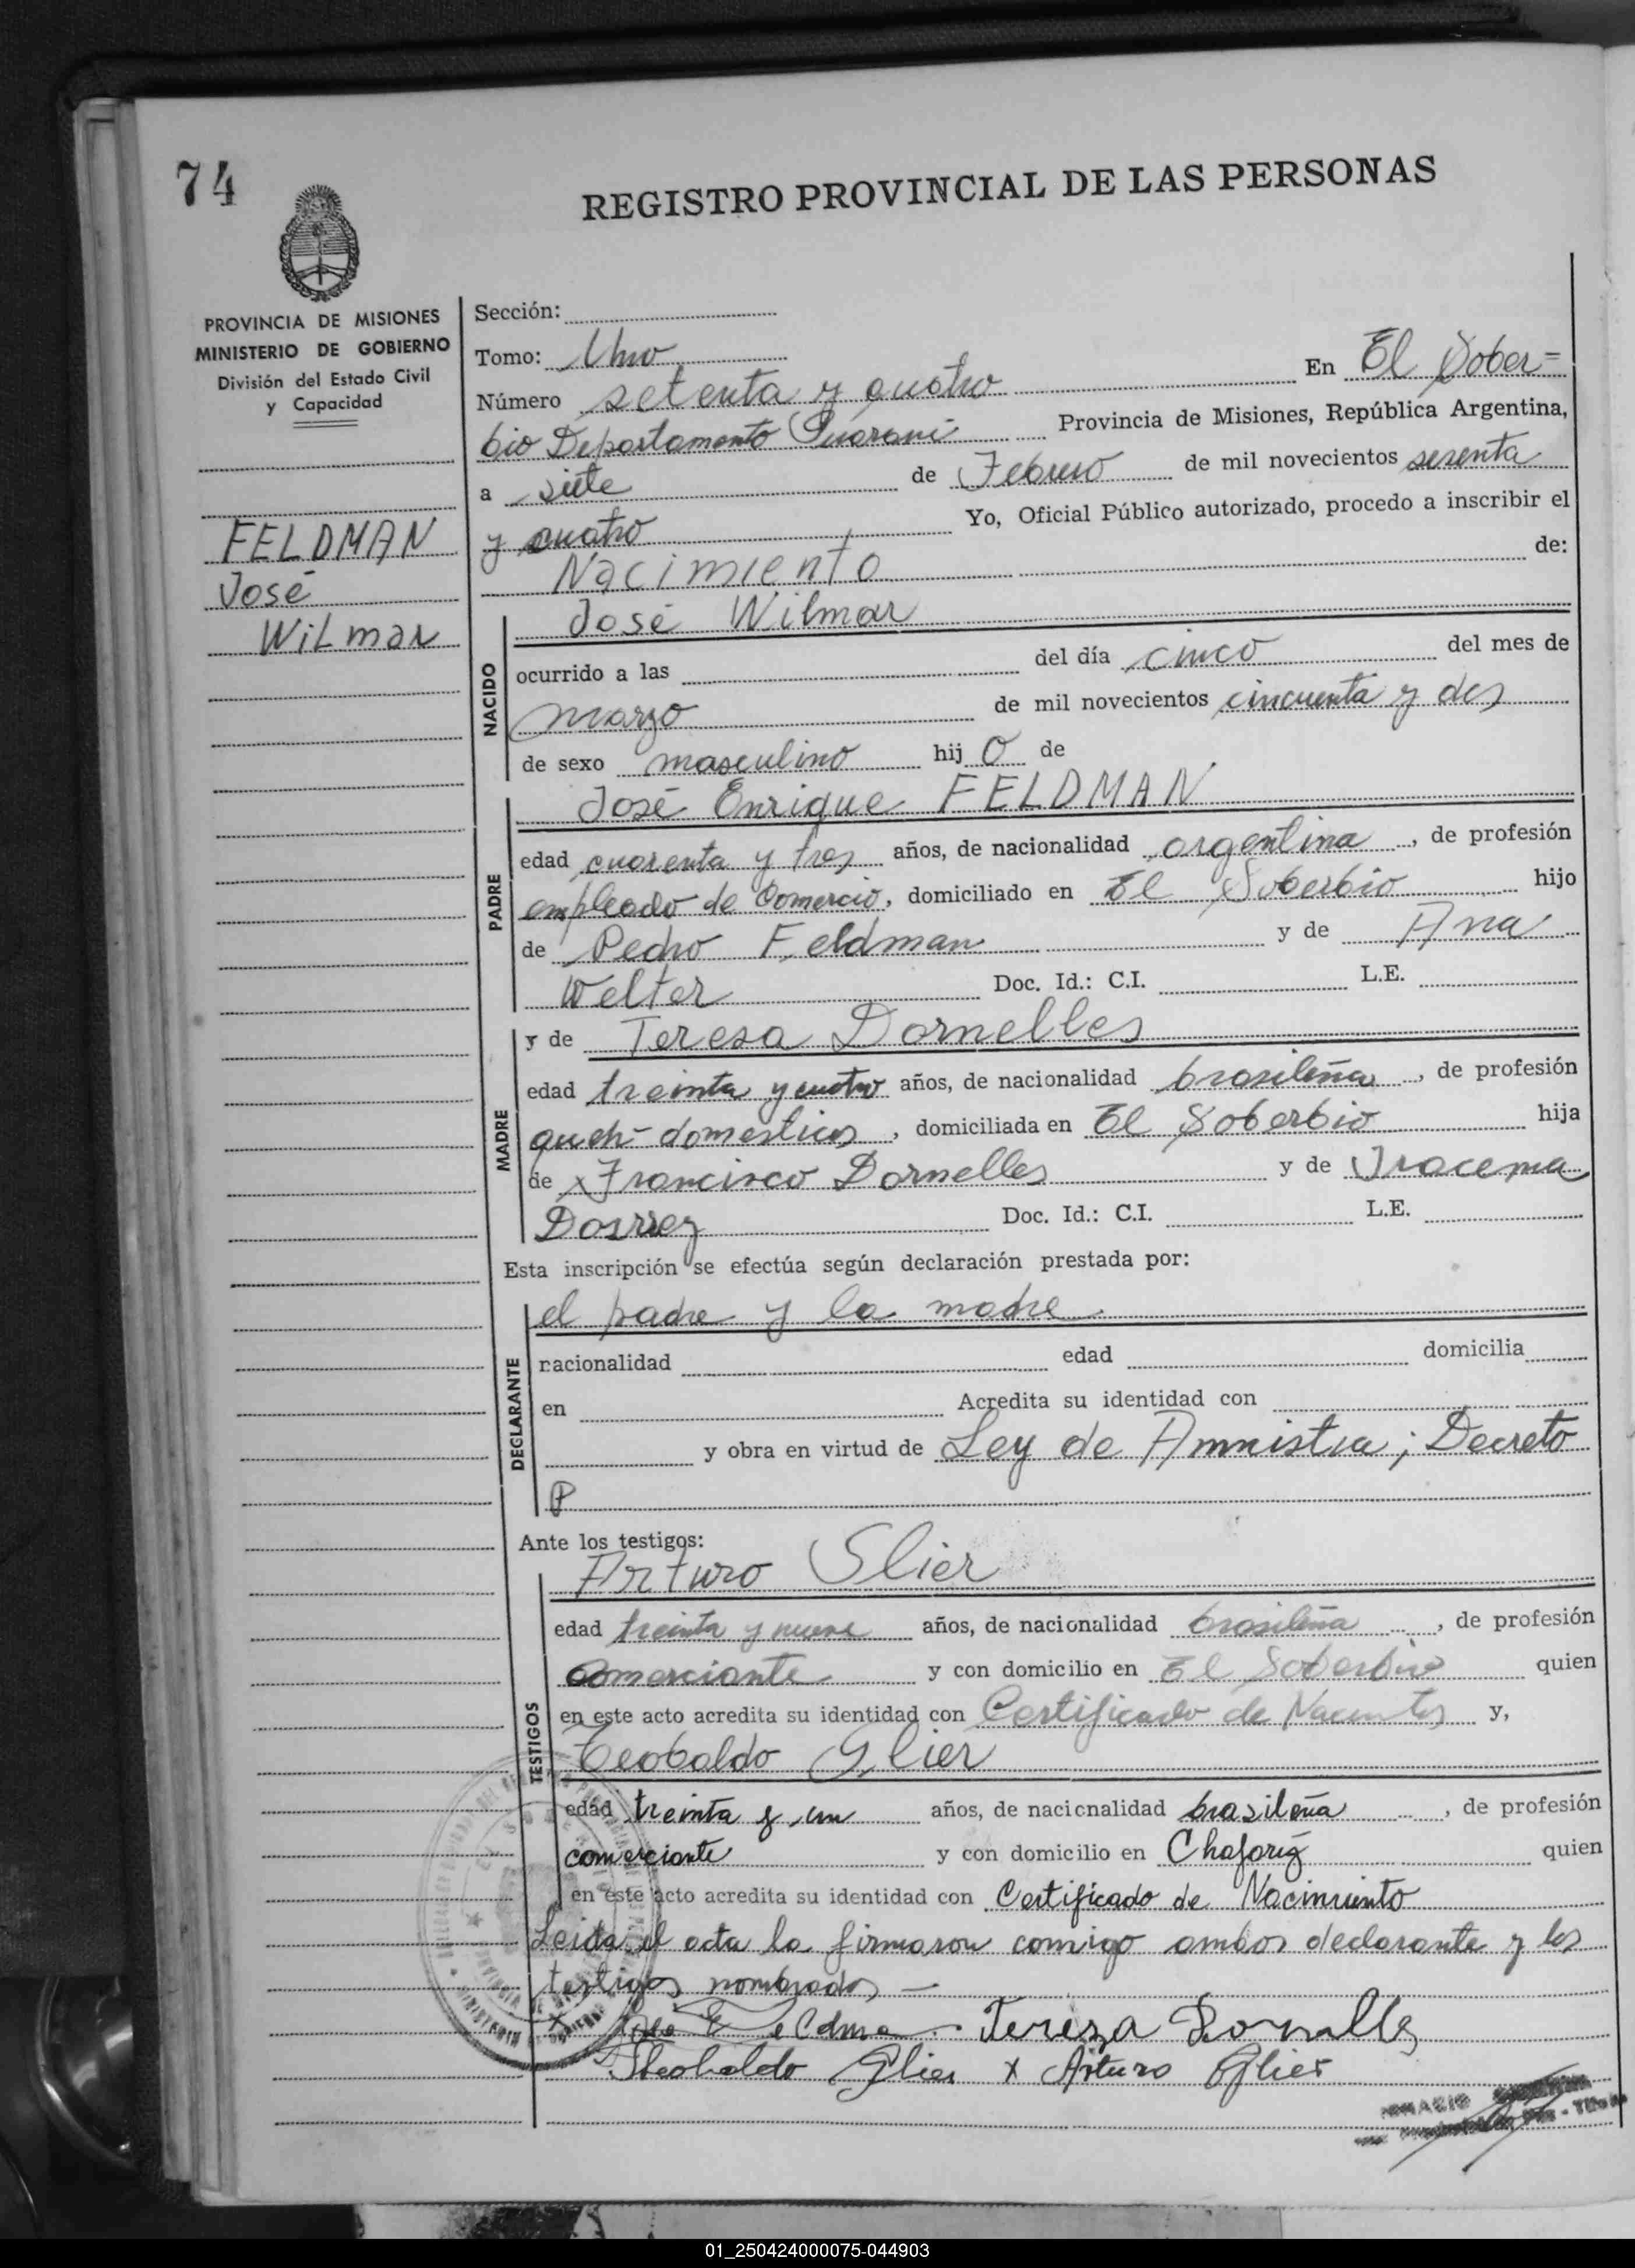 74
REGISTRO PROVINCIAL DE LAS PERSONAS
PROVINCIA DE MISIONES
MINISTERIO DE GOBIERNO
División del Estado Civil
y Capacidad
FELDMAN
José
Wilmar
Sección:
Tomo: Uno
Número setenta y cuatro En El Sober=
bio Departamento Guaraní Provincia de Misiones, República Argentina,
a siete de Febrero de mil novecientos sesenta
y cuatro Yo, Oficial Público autorizado, procedo a inscribir el
Nacimiento de:
NACIDO
José Wilmar
ocurrido a las del día cinco del mes de
marzo de mil novecientos cincuenta y dos
de sexo masculino hij o de
PADRE
José Enrique FELDMAN
edad cuarenta y tres años, de nacionalidad argentina, de profesión
empleado de Comercio, domiciliado en El Soberbio hijo
de Pedro Feldman y de Ana
Welter Doc. Id.: C.I. L.E.
MADRE
y de Teresa Dornelles
edad treinta y cuatro años, de nacionalidad brasileña, de profesión
domesticos, domiciliada en El Soberbio hija
de Francisco Dornelles y de Iracema
Doc. Id.: C.I. L.E.
Esta inscripción se efectúa según declaración prestada por:
DECLARANTE
el padre y la madre
nacionalidad edad domicilia
en Acredita su identidad con
y obra en virtud de Ley de Amnistia; Decreto
Ante los testigos:
TESTIGOS
Arturo Glier
edad treinta y nueve años, de nacionalidad brasileña, de profesión
Comerciante y con domicilio en El Soberbio quien
en este acto acredita su identidad con Certificado de y,
Teobaldo Glier
edad treinta y un años, de nacionalidad brasileña, de profesión
comerciante y con domicilio en quien
en este acto acredita su identidad con Certificado de Nacimiento
Leida el acta la firmaron conmigo ambos declarante y los
testigos nombrados —
Tereza Dornelles
Theobaldo Glier x Arturo Glier
01_250424000075-044903